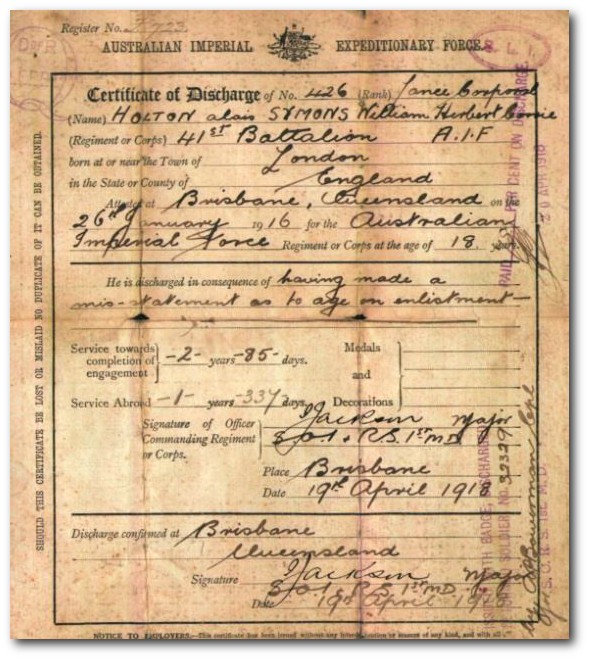 Register No.
AUSTRALIAN IMPERIAL EXPEDITIONARY FORCE.
Certificate of Discharge of No. 426 (Rank) Lance Corporal
(Name) HOLTON alais SYMONS William Herbert
(Regiment or Corps) 41ST Battalion A.I.F
born at or near the Town of London
in the State or County of England
Attested at Brisbane, Queensland on the
26th January 1916 for the Australian
Imperial Force Regiment or Corps at the age of 18 years.
He is discharged in consequence of having made a
mis-statement as to age on enlistment—
Service towards completion of engagement } -2- years -85- days.
Medals
and
Decorations
Service Abroad -1- years -337 days.
Signature of Officer Commanding Regiment or Corps. Jackson Major
1st M.D
Place Brisbane
Date 19th April 1918
Discharge confirmed at Brisbane
Queensland
Signature Jackson Major
1st M.D.
Date 19th April 1918
NOTICE TO EMPLOYERS.—This certificate has been issued without any
SHOULD THIS CERTIFICATE BE LOST OR MISLAID NO DUPLICATE OF IT CAN BE OBTAINED.
PER CENT ON DISCHARGE
30 APR 1918
BADGE, DISCHARGED
SOLDIER NO. 32329